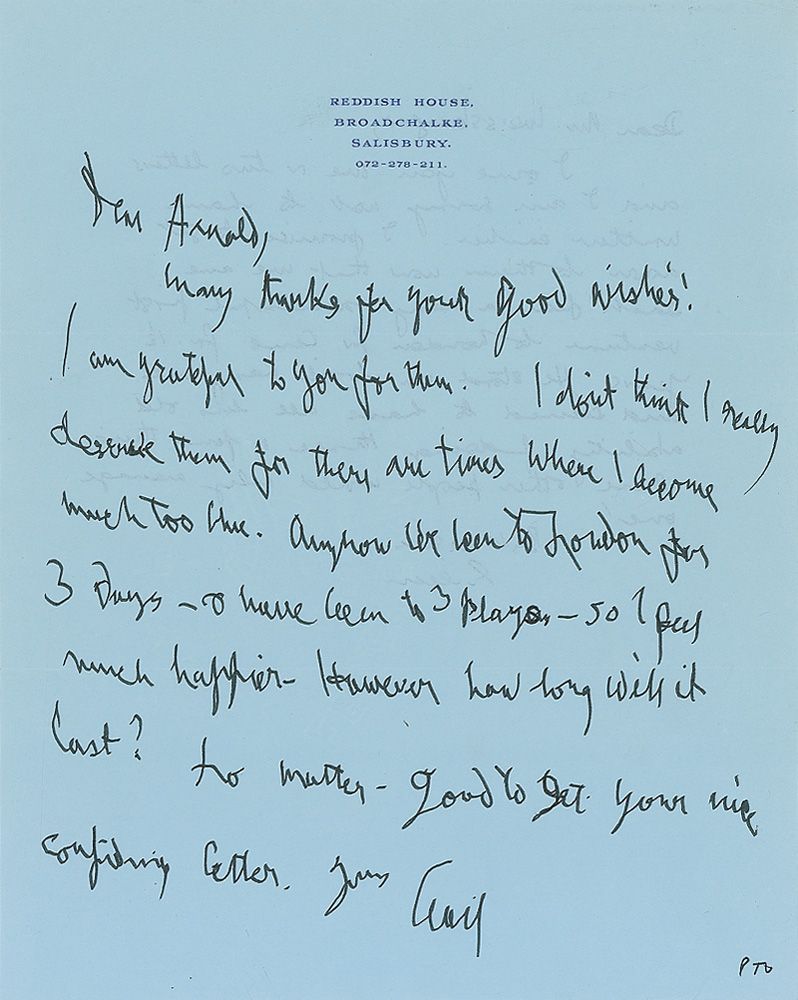 REDDISH HOUSE,
BROADCHALKE,
SALISBURY.
072-278-211.
Dear Arnold,
Many thanks for your good wishes!
I am grateful to you for them. I don't think I really
deserve them for there are times where I become
much too blue. Anyhow I've been to London for
3 Days – & have been to 3 plays – so I feel
much happier – However how long will it
last?
No matter – Good to get your nice
confiding letter. Yours
Cecil
PTO